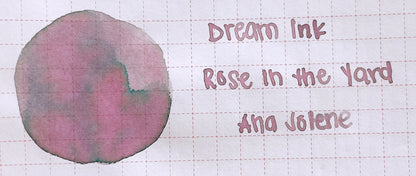 Dream Ink
Rose In the Yard
Ana Jolene